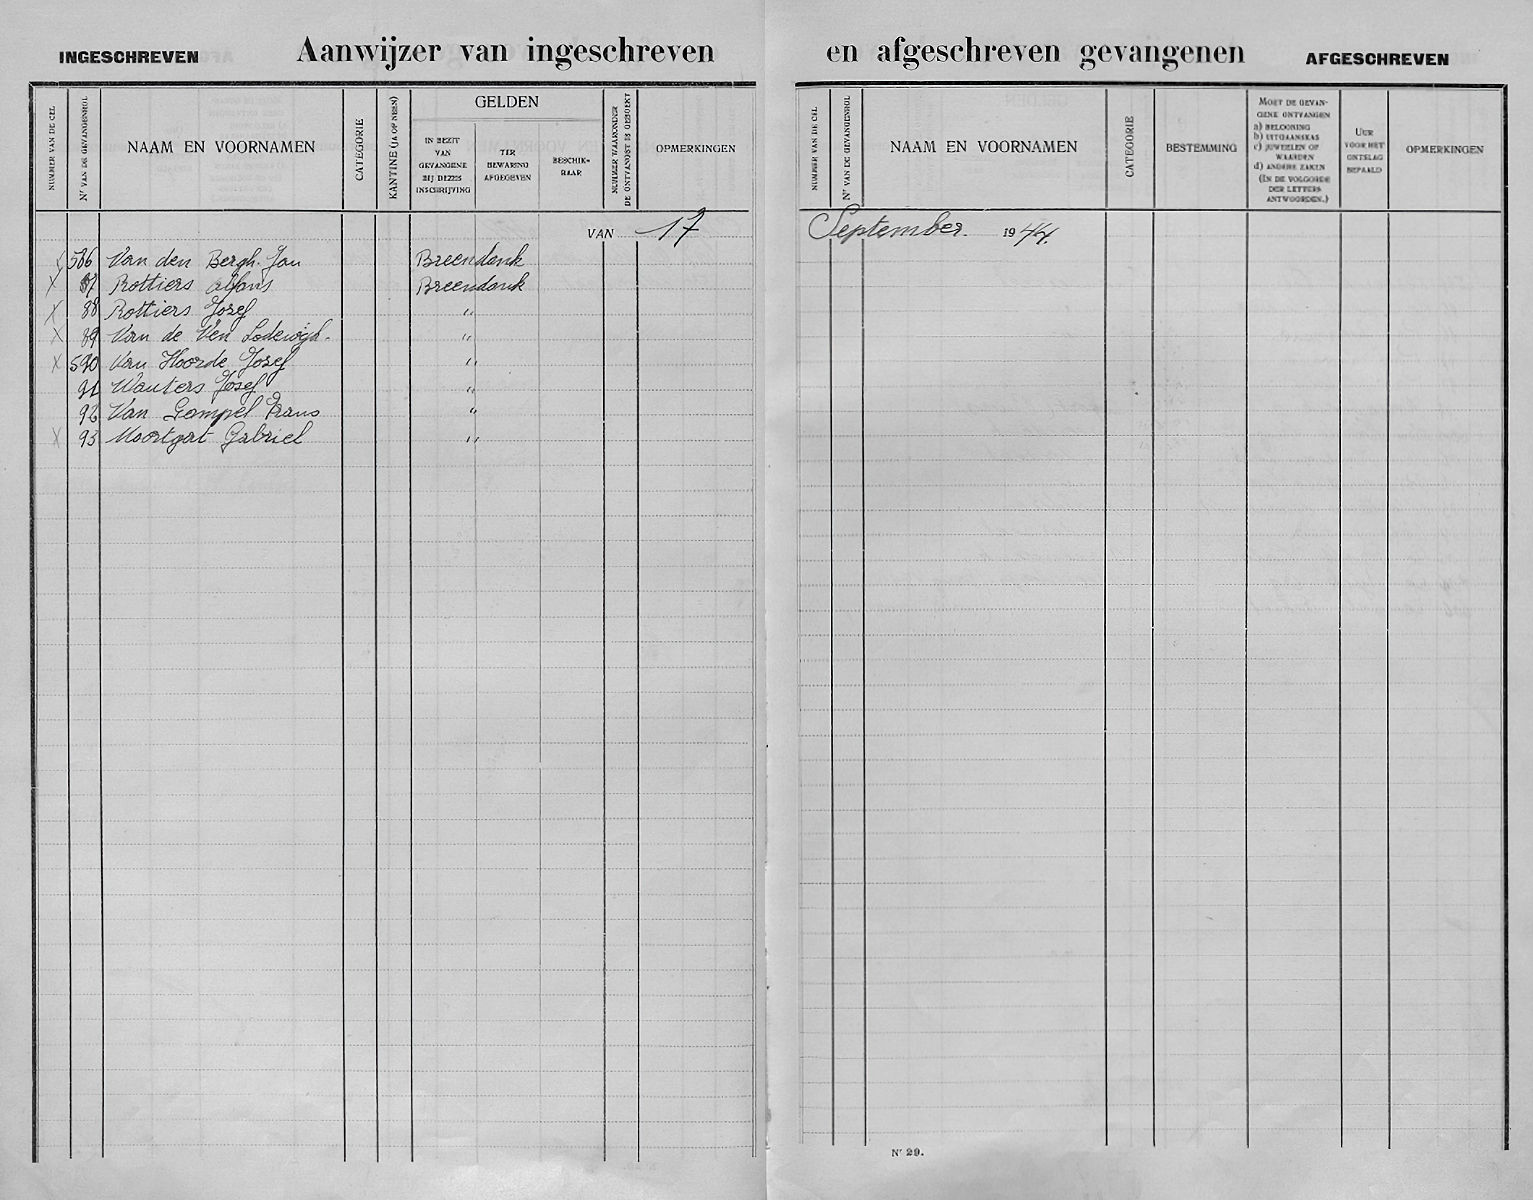 INGESCHREVEN Aanwijzer van ingeschreven en afgeschreven gevangenen AFGESCHREVEN
NUMMER VAN DE CEL
Nr VAN DE GEVANGENROL
NAAM EN VOORNAMEN
CATEGORIE
KANTINE (JA OF NEEN)
GELDEN
IN BEZIT
VAN
GEVANGENE
BIJ DEZES
INSCHRIJVING
TER
BEWARING
AFGEGEVEN
BESCHIK-
BAAR
NUMMER WAARONDER
DE ONTVANGST IS GEBOEKT
OPMERKINGEN
NUMMER VAN DE CEL
Nr VAN DE GEVANGENROL
NAAM EN VOORNAMEN
CATEGORIE
BESTEMMING
MOET DE GEVAN-
GENE ONTVANGEN
a) BELOONING
b) UITGAANSKAS
c) JUWEELEN OF
WAARDEN
d) ANDERE ZAKEN
(IN DE VOLGORDE
DER LETTERS
ANTWOORDEN.)
UUR
VOOR HET
ONTSLAG
BEPAALD
OPMERKINGEN
VAN 17 September. 1944.
X 586 Van den Bergh Jan Breendonk
X 87 Rottiers Alfons Breendonk
X 88 Rottiers Jozef "
X 89 Van de Ven Lodewijk. "
X 590 Van Hoorde Jozef "
91 Wauters Jozef "
92 Van Gompel Frans "
X 93 Moortgat Gabriel "
Nr 29.